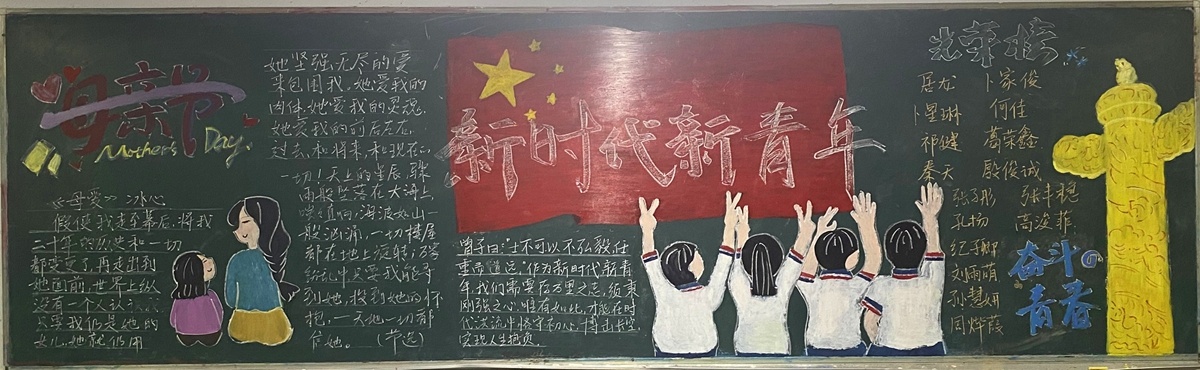 母亲节
Mother's Day.
《母爱》 冰心
假使我走至幕后,将我
二十年的历史和一切
都变更了,再走出到
她面前,世界上纵
没有一个人认识我
只要我仍是她的
女儿,她就仍用
她坚强无尽的爱
来包围我。她爱我的
肉体,她爱我的灵魂,
她爱我的前后左右,
过去,和将来,和现在。
一切!天上的星辰,骤
雨般坠落在大海上
嗤嗤繁响。海波如山一
般汹涌,一切楼屋
都在地上旋转,万
我能寻
到她,投到她的怀
抱,一天地一切都
有她。 (节选)
新时代新青年
曾子曰:“士不可以不弘毅,任
重而道远。”作为新时代新青
年,我们需要存万里之志,须秉
刚强之心,惟有如此,才能在时
代洪流中恪守初心,搏击长空,
实现人生抱负
光荣榜
居龙 卜家俊
卜星琳 何佳
祁健 葛荣鑫
秦天 殷俊诚
张子彤 张丰稳
孔扬 高浚菲
纪子卿
刘雨萌
孙慧妍
闫烨葭
奋斗の
青春